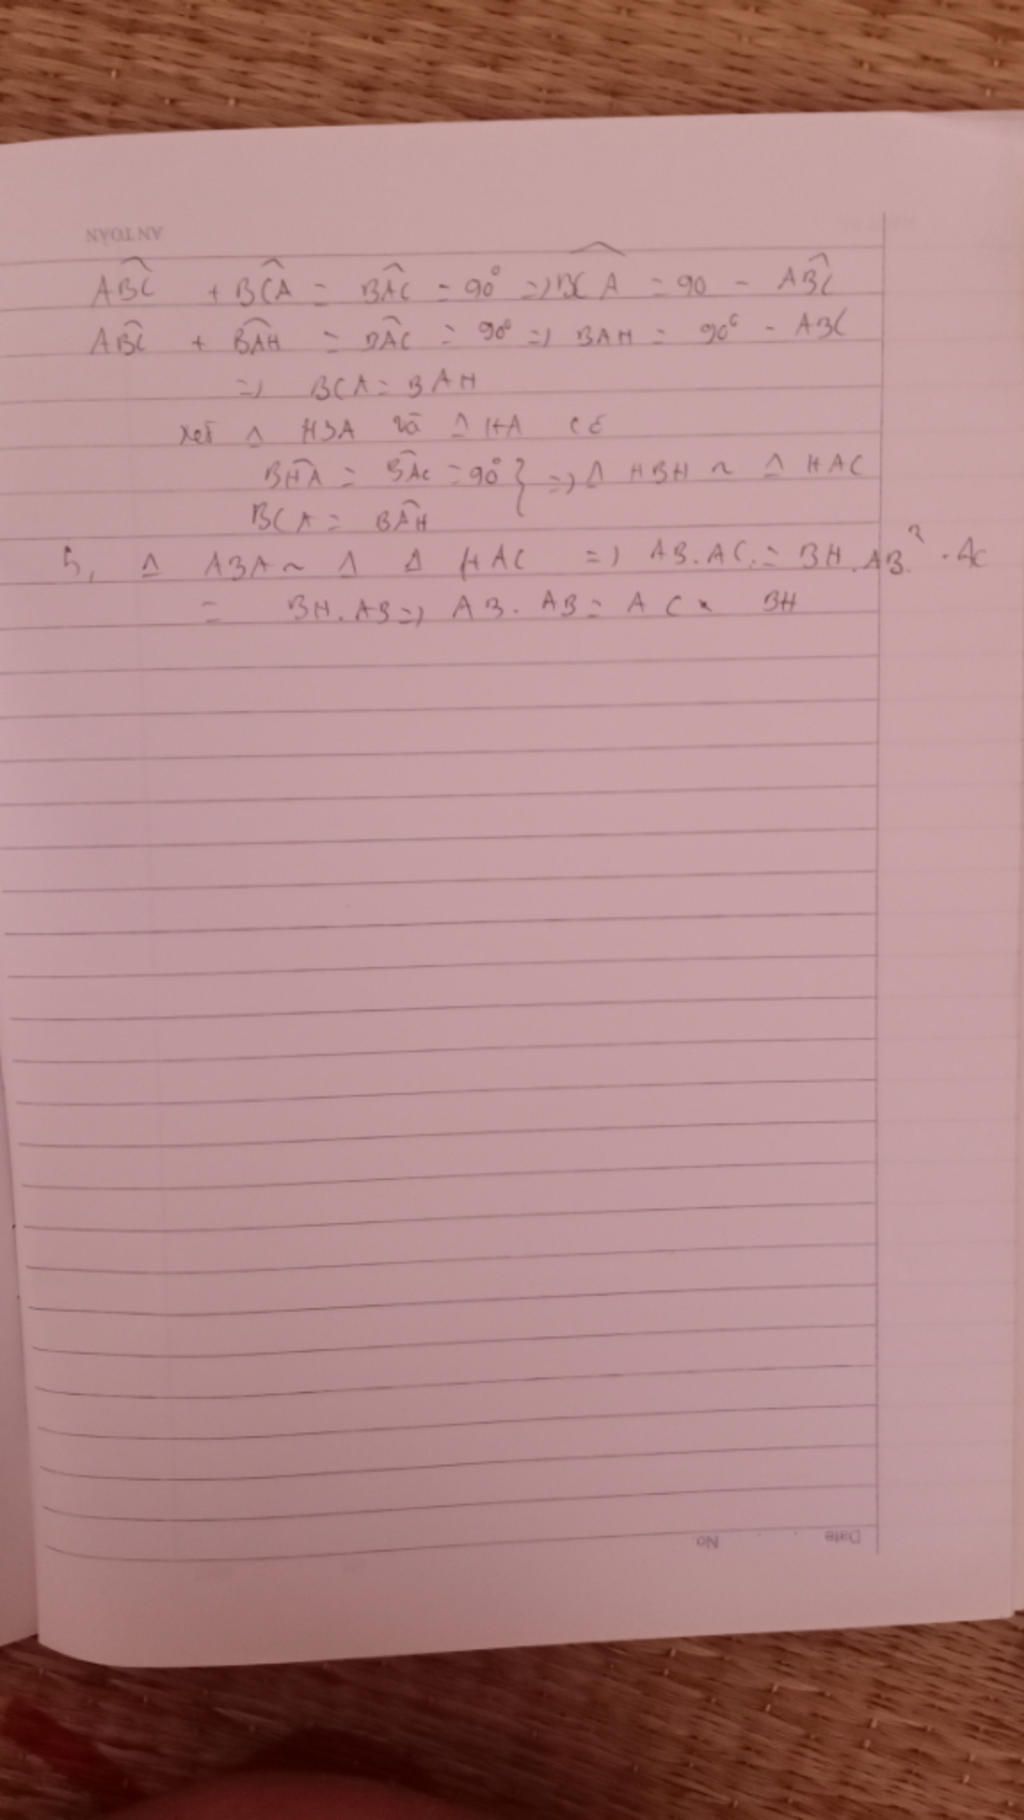 AN TOÀN
ABC + BCA = BAC = 90° => BCA = 90 - ABC
ABC + BAH = BAC = 90° => BAH = 90° - ABC
=> BCA = BAH
xét Δ HBA và Δ HA có
BHA = BAC = 90° } => Δ HBH ~ Δ HAC
BCA = BAH
b, Δ ABA ~ Δ Δ HAC => AB.AC. = BH.AB.² . AC
= BH.AB => AB. AB = AC x BH
Date No